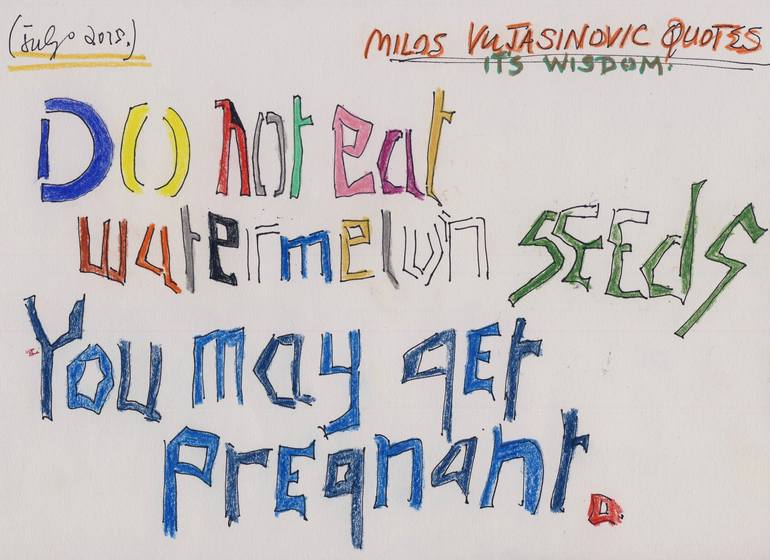 (July 2018.)
MILOS VUJASINOVIC QUOTES
ITS WISDOM.
Do not eat
watermelon SEEds
You may get
PrEgnant.